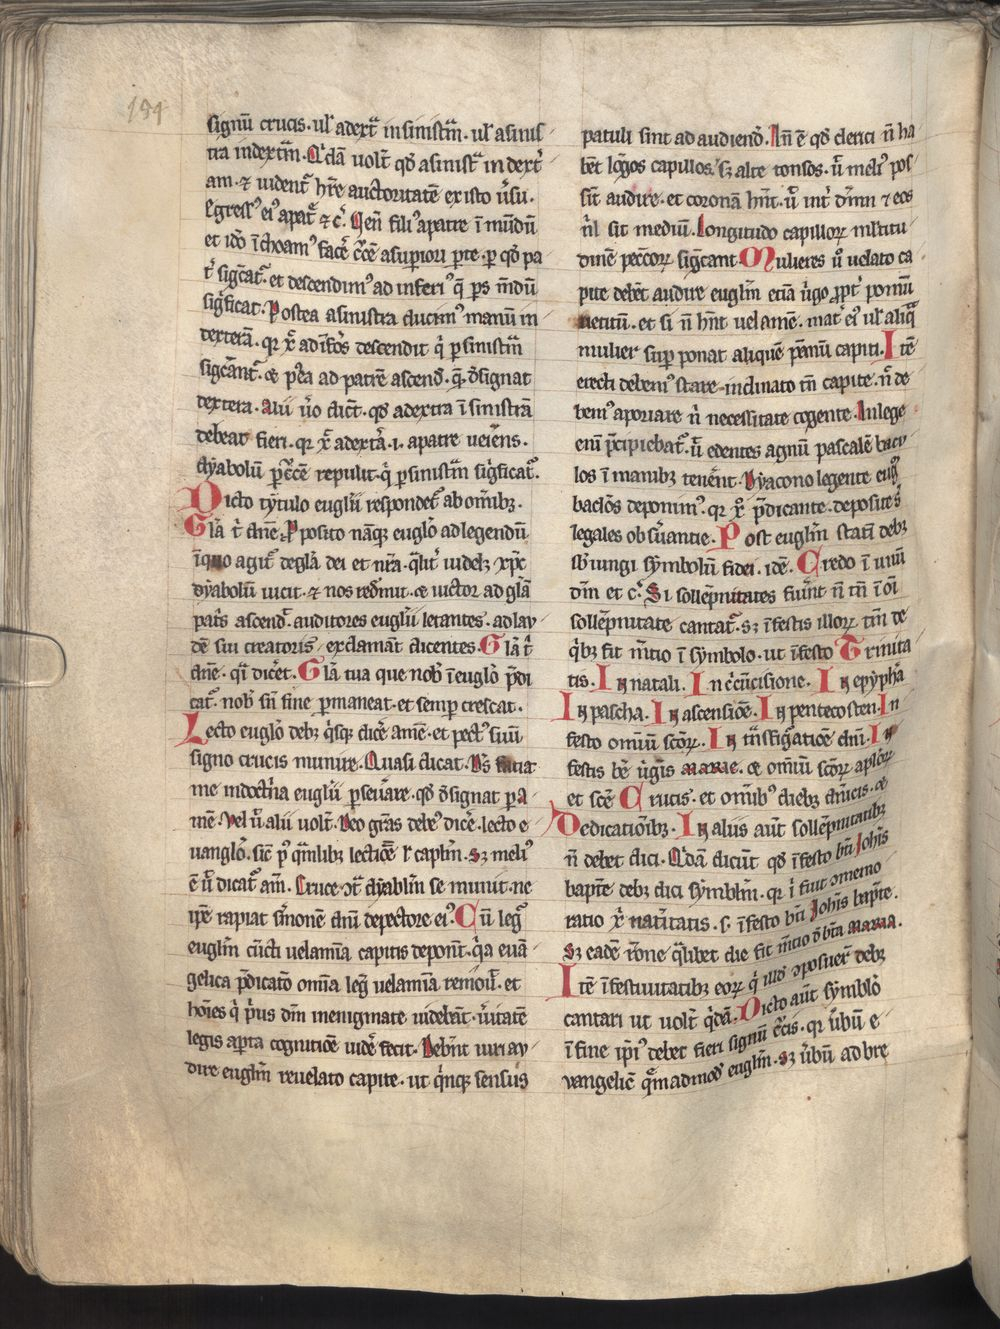 194
signū crucis. ul' adextᵃ insinistᵃm. ul' asinis
tra indextrā. Qⁱdā volt̄ qd̓ asinistᵃ in dext̓
am. ⁊ uident̓ hr̄e auctoritatē ex isto v̓su.
Egress' ei' apat̓ ⁊ c̓. Qen̄ fili' apatre ī mūdū
et ido̓ īchoam' facē c̓cē asup̱iori p̱te. p̱ qd̓ pa
t̓ sigcāt̓. et descendim' ad inferi' q̄ p̱s mūdū
sigⁱficat. Postea asinistra ducim' manū in
dexterā. qr xp̄ ad īfōs descendit qⁱ p̱ sinistᵃm
sigcānt̓. ⁊ p̓ea ad patrē ascend̓. q̄ d̓signat
dextera. Alii v̓o dicn̄t. qd̓ adextra ī sinistrā
debeat fieri. qr xp̄ adextᵃ .i. apatre ueiēns.
dẏabolū p̱ c̓cē repulit. qⁱ p̱ sinistᵃm sigⁱficat̓.
Dicto tẏtulo euglii respondet̓ ab om̄ibꝫ.
Gl̄a t̓ dn̄e. Pposito nāqꝫ euglo̓ ad legendū
īquo agit̓ degl̄a dei et nr̄a. qᵃlit̓ uidelꝫ xp̄c
dẏabolū uicit. ⁊ nos redimit. ⁊ uictor ad gl̄ā
patⁱs ascend̓. auditores euglii letantes. ad lau
dē sui creatoris exclamāt dicentes. Gl̄a t̓
dn̄e. qᵃi dic̓et. Gl̄a tua que nob̓ ī euglo̓ p̄di
cat̓. nob̓ sn̄ fine p̱maneat. et semp̱ crescat.
Lecto euglo̓ debꝫ qⁱsqꝫ dic̓e amē. et pect' suū
signo crucis munire. Quasi dicat. Ds̄ faciat
me indoctⁱna euglii p̱seu̓are. qd̓ d̓signat p̱ a
mē. Vel u̓ alii volt̄. Deo grās debe' dic̓e. lecto e
uanglo̓. sic̄ p' qᵃmlibꝫ lectiōē l' capl̄m. sꝫ meli'
ē u̓ dicat̓ am̄. Cruce ꝯt̓ dẏablm̄ se munit. ne
ip̄e rapiat s̓monē dn̄i depectore ei'. Cū leg̓
euglm̄ cūcti uelamīa capitis deponūt. qⁱa euā
gelica p̄dicatō omīa leg̓ uelamīa remouit. et
hōies qⁱ pⁱus dm̄ inenigmate uidebāt. v̓itatē
legis ap̱ta cognitiōe uid̓e fecit. Debēnt viri au
dire euglm̄ reuelato capite. ut qⁱnqꝫ sensus
patuli sint ad audiend̓. In̄ ē qd̓ clerici n̄ ha
bēt lg̓os capillos. sꝫ alte tonsos. u̓ meli' pos
sīt audire. et coronā hn̄t. u̓ int̓ dm̄m ⁊ eos
nl̓ sit mediū. Longitudo capilloꝝ mltitu
dinē pecc̄oꝝ sigcant. Mulieres u̓ uelato ca
pite debēt audire euglm̄ etiā v̓go pp̱t̓ pomū
uetitū. et si n̄ hn̄t uelamē. mat̓ ei' ul' aliqᵃ
mulier sup̱ ponat aliquē pānū capiti. Itē
erecti debem' stare inclinato tn̄ capite. n̓ de
bem' apoiare n̓ necessitate cogente. In lege
eni p̄cipiebat̓. u̓ edentes agnū paschalē bacu
los ī manibꝫ ten̓ent. Dẏacono legente eug̓
baclo̓s deponim'. qr xp̄o p̄dicante. deposite s̄
legales obs̓uantie. Post euglm̄ statī debꝫ
sb̓iungi sẏmbolū fidei. idē. Credo ī unū
dm̄ et c̓. Si sollēpnitates fiu̓nt n̄ tn̄ ī oi
sollēpnitate cantat̓. sꝫ īfestis illoꝝ tm̄ de
qⁱbꝫ fit mn̄tio ī sẏmbolo. ut īfesto Trinita
tis. In natali. In c̓cūcisione. In epẏphᵃ
In pascha. In ascensiōe. In pentecosten. In
festo omniū scōꝝ. In tᵃnsfigᵃatiōe dn̄i. In
festis bē v̓gīs marie. ⁊ omīū scōꝝ aploꝝ
et scē Crucis. et omib' diebꝫ dn̄icis. ⁊
Dedicatiōībꝫ. In aliis aūt sollēpnitatibꝫ
n̄ debet dici. Qⁱdā dicūt qd̓ īfesto bti Joh̄is
bapt̄e debꝫ dici sẏmblm̄. qr ī fiuit ꝯmemo
ratio xp̄i natiu̓tatis. s. īfesto bti Joh̄is bapt̄e.
Sꝫ eadē rōne qᵃlibet die fit mn̄tio d̓ bt̄a maria.
Itē īfestiuitatibꝫ eoꝝ qⁱ illd̓ ꝯposuer̄t debꝫ
cantari ut volt̄ qⁱdā. Dicto aūt sẏmblo̓
ī fine ip̄i' debet fieri signū c̓cis. qr u̓bū e
vangelic̄ qᵃmadmod̓ euglm̄. sꝫ u̓bū adbre